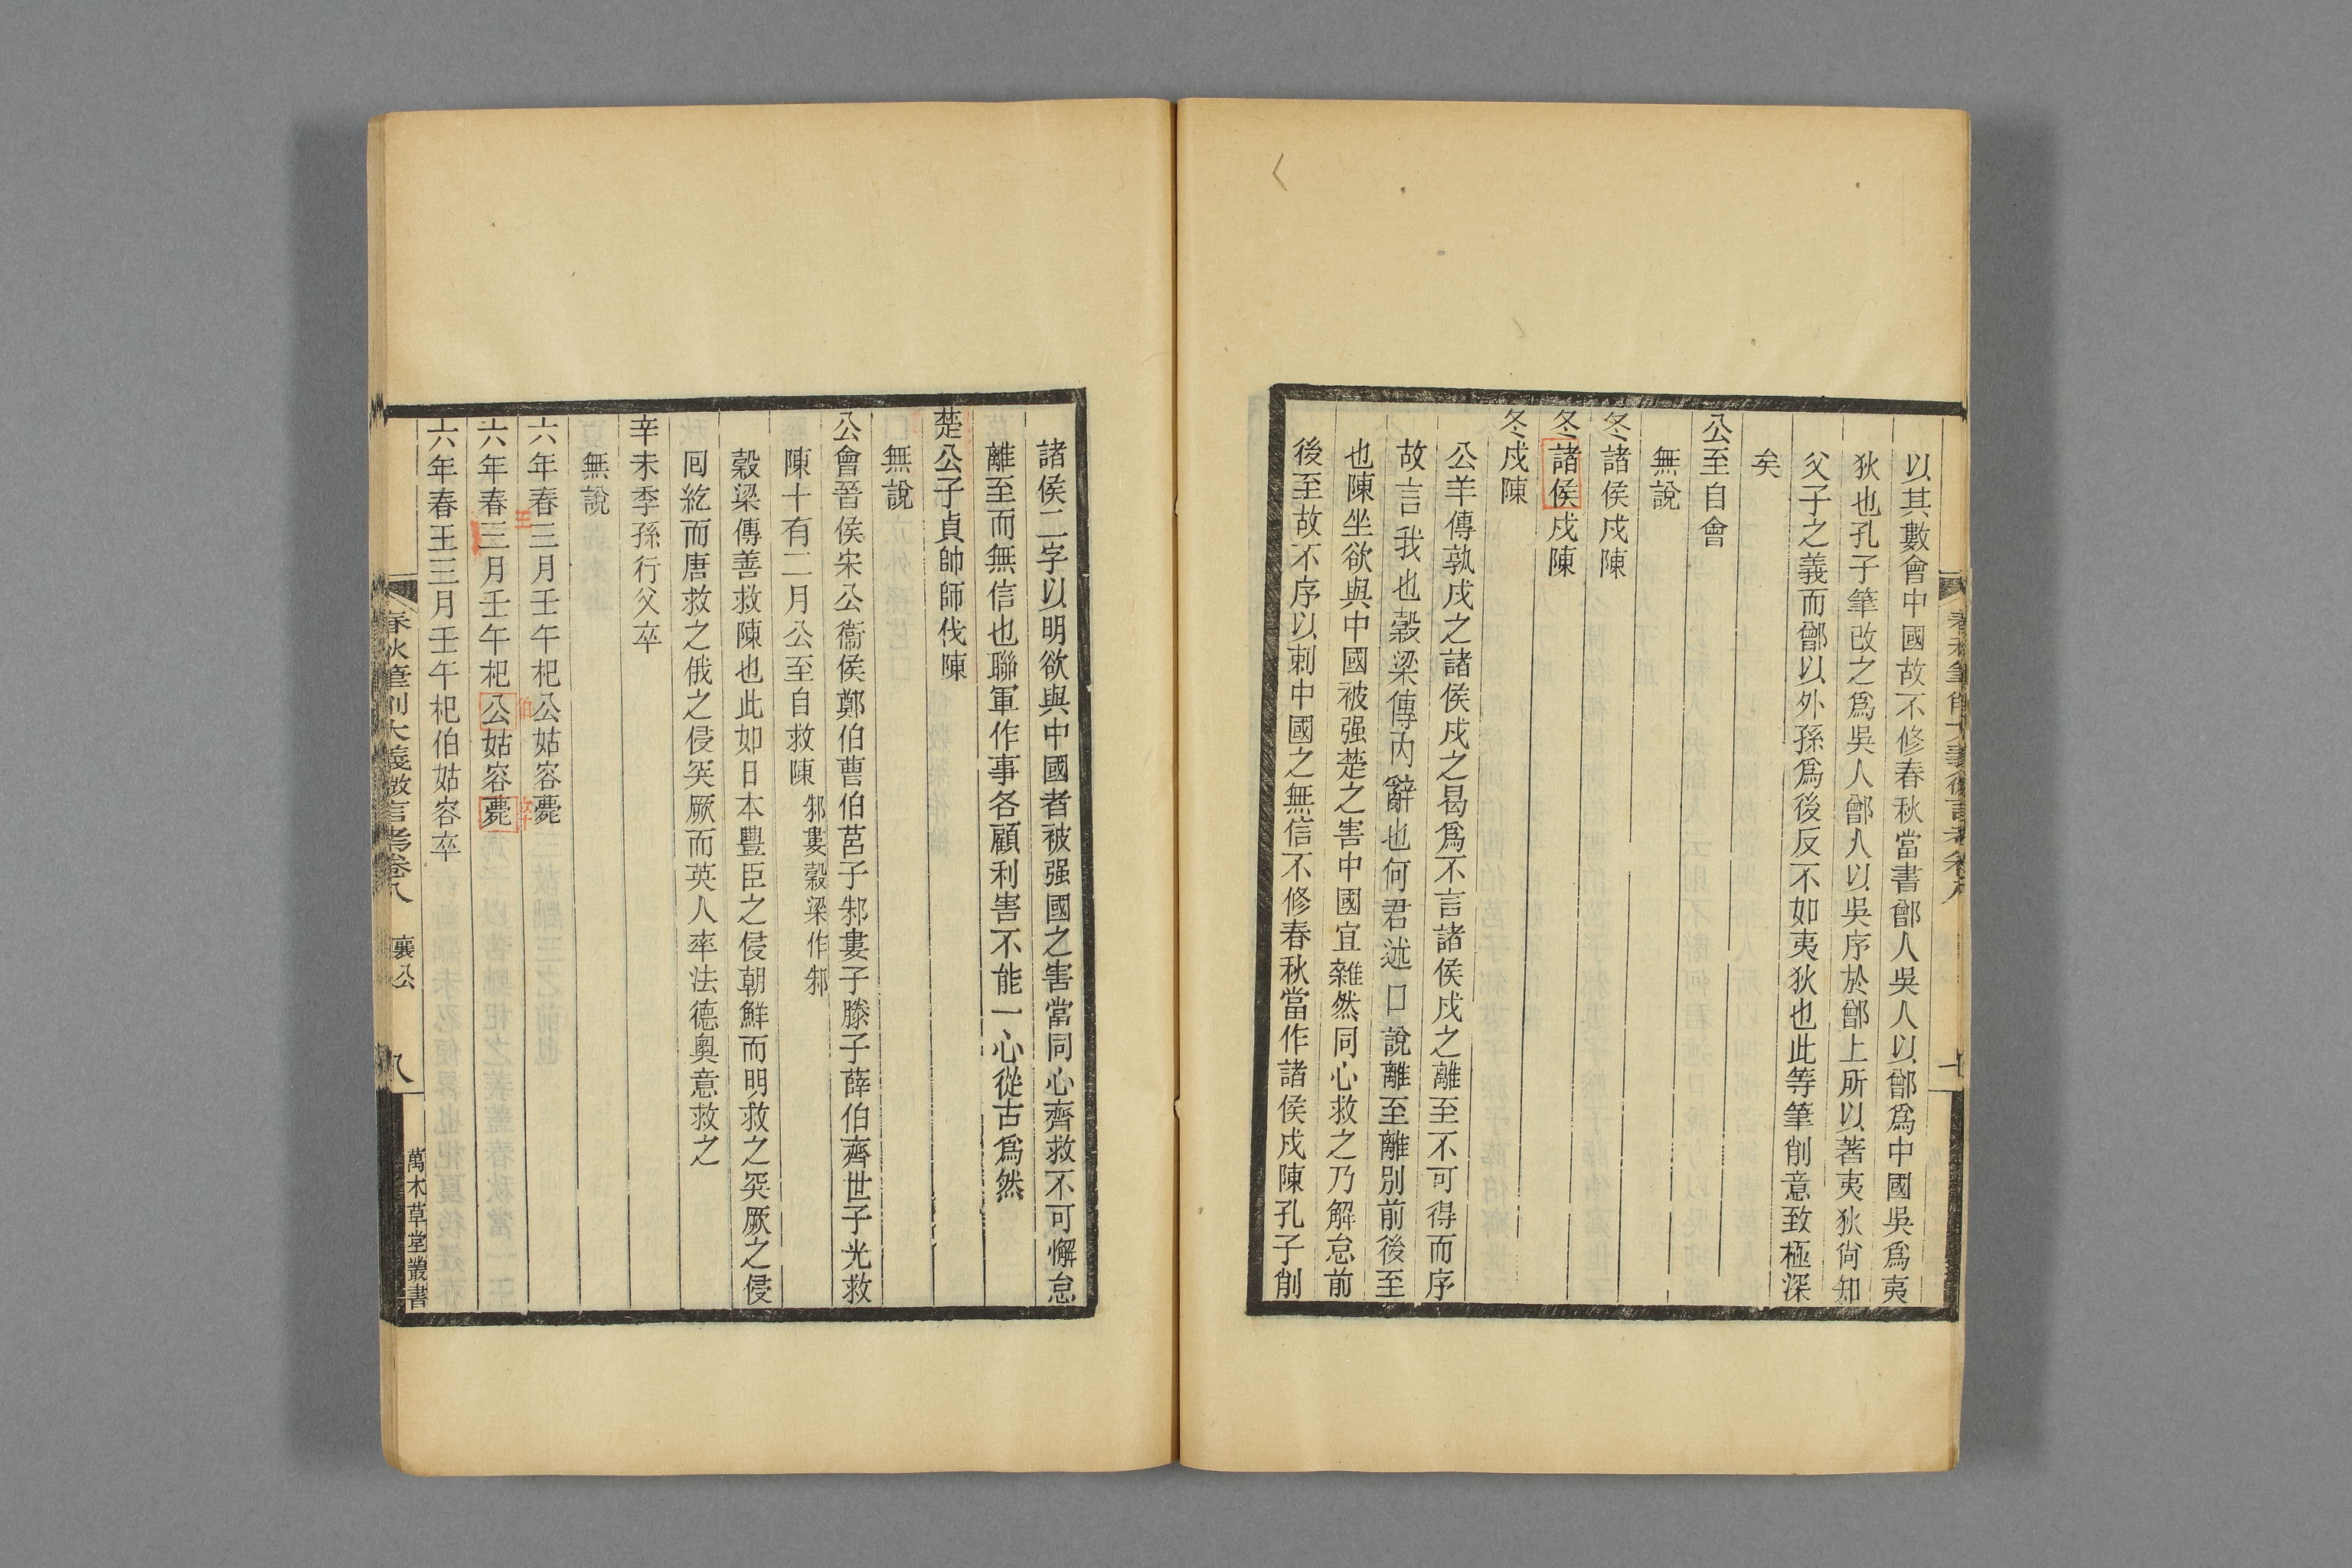 以其數會中國故不修春秋當書鄫人吳人以鄫爲中國吳爲夷
狄也孔子筆改之爲吳人鄫人以吳序於鄫上所以著夷狄尙知
父子之義而鄫以外孫爲後反不如夷狄也此等筆削意致極深
矣
公至自會
無說
冬諸侯戍陳
冬諸侯戍陳
冬戍陳
公羊傳孰戍之諸侯戍之曷爲不言諸侯戍之離至不可得而序
故言我也穀梁傳內辭也何君述口說離至離別前後至
也陳坐欲與中國被强楚之害中國宜雜然同心救之乃解怠前
後至故不序以刺中國之無信不修春秋當作諸侯戍陳孔子削
諸侯二字以明欲與中國者被强國之害當同心齊救不可懈怠
離至而無信也聯軍作事各顧利害不能一心從古爲然
楚公子貞帥師伐陳
無說
公會晉侯宋公衞侯鄭伯曹伯莒子邾婁子滕子薛伯齊世子光救
陳十有二月公至自救陳 邾婁穀梁作邾
穀梁傳善救陳也此如日本豐臣之侵朝鮮而明救之突厥之侵
囘紇而唐救之俄之侵突厥而英人率法德奧意救之
辛未季孫行父卒
無說
六年春三月壬午杞公姑容薨
六年春三月壬午杞公姑容薨
六年春王三月壬午杞伯姑容卒
春秋筆削大義微言考卷八 襄公 八
萬木草堂叢書